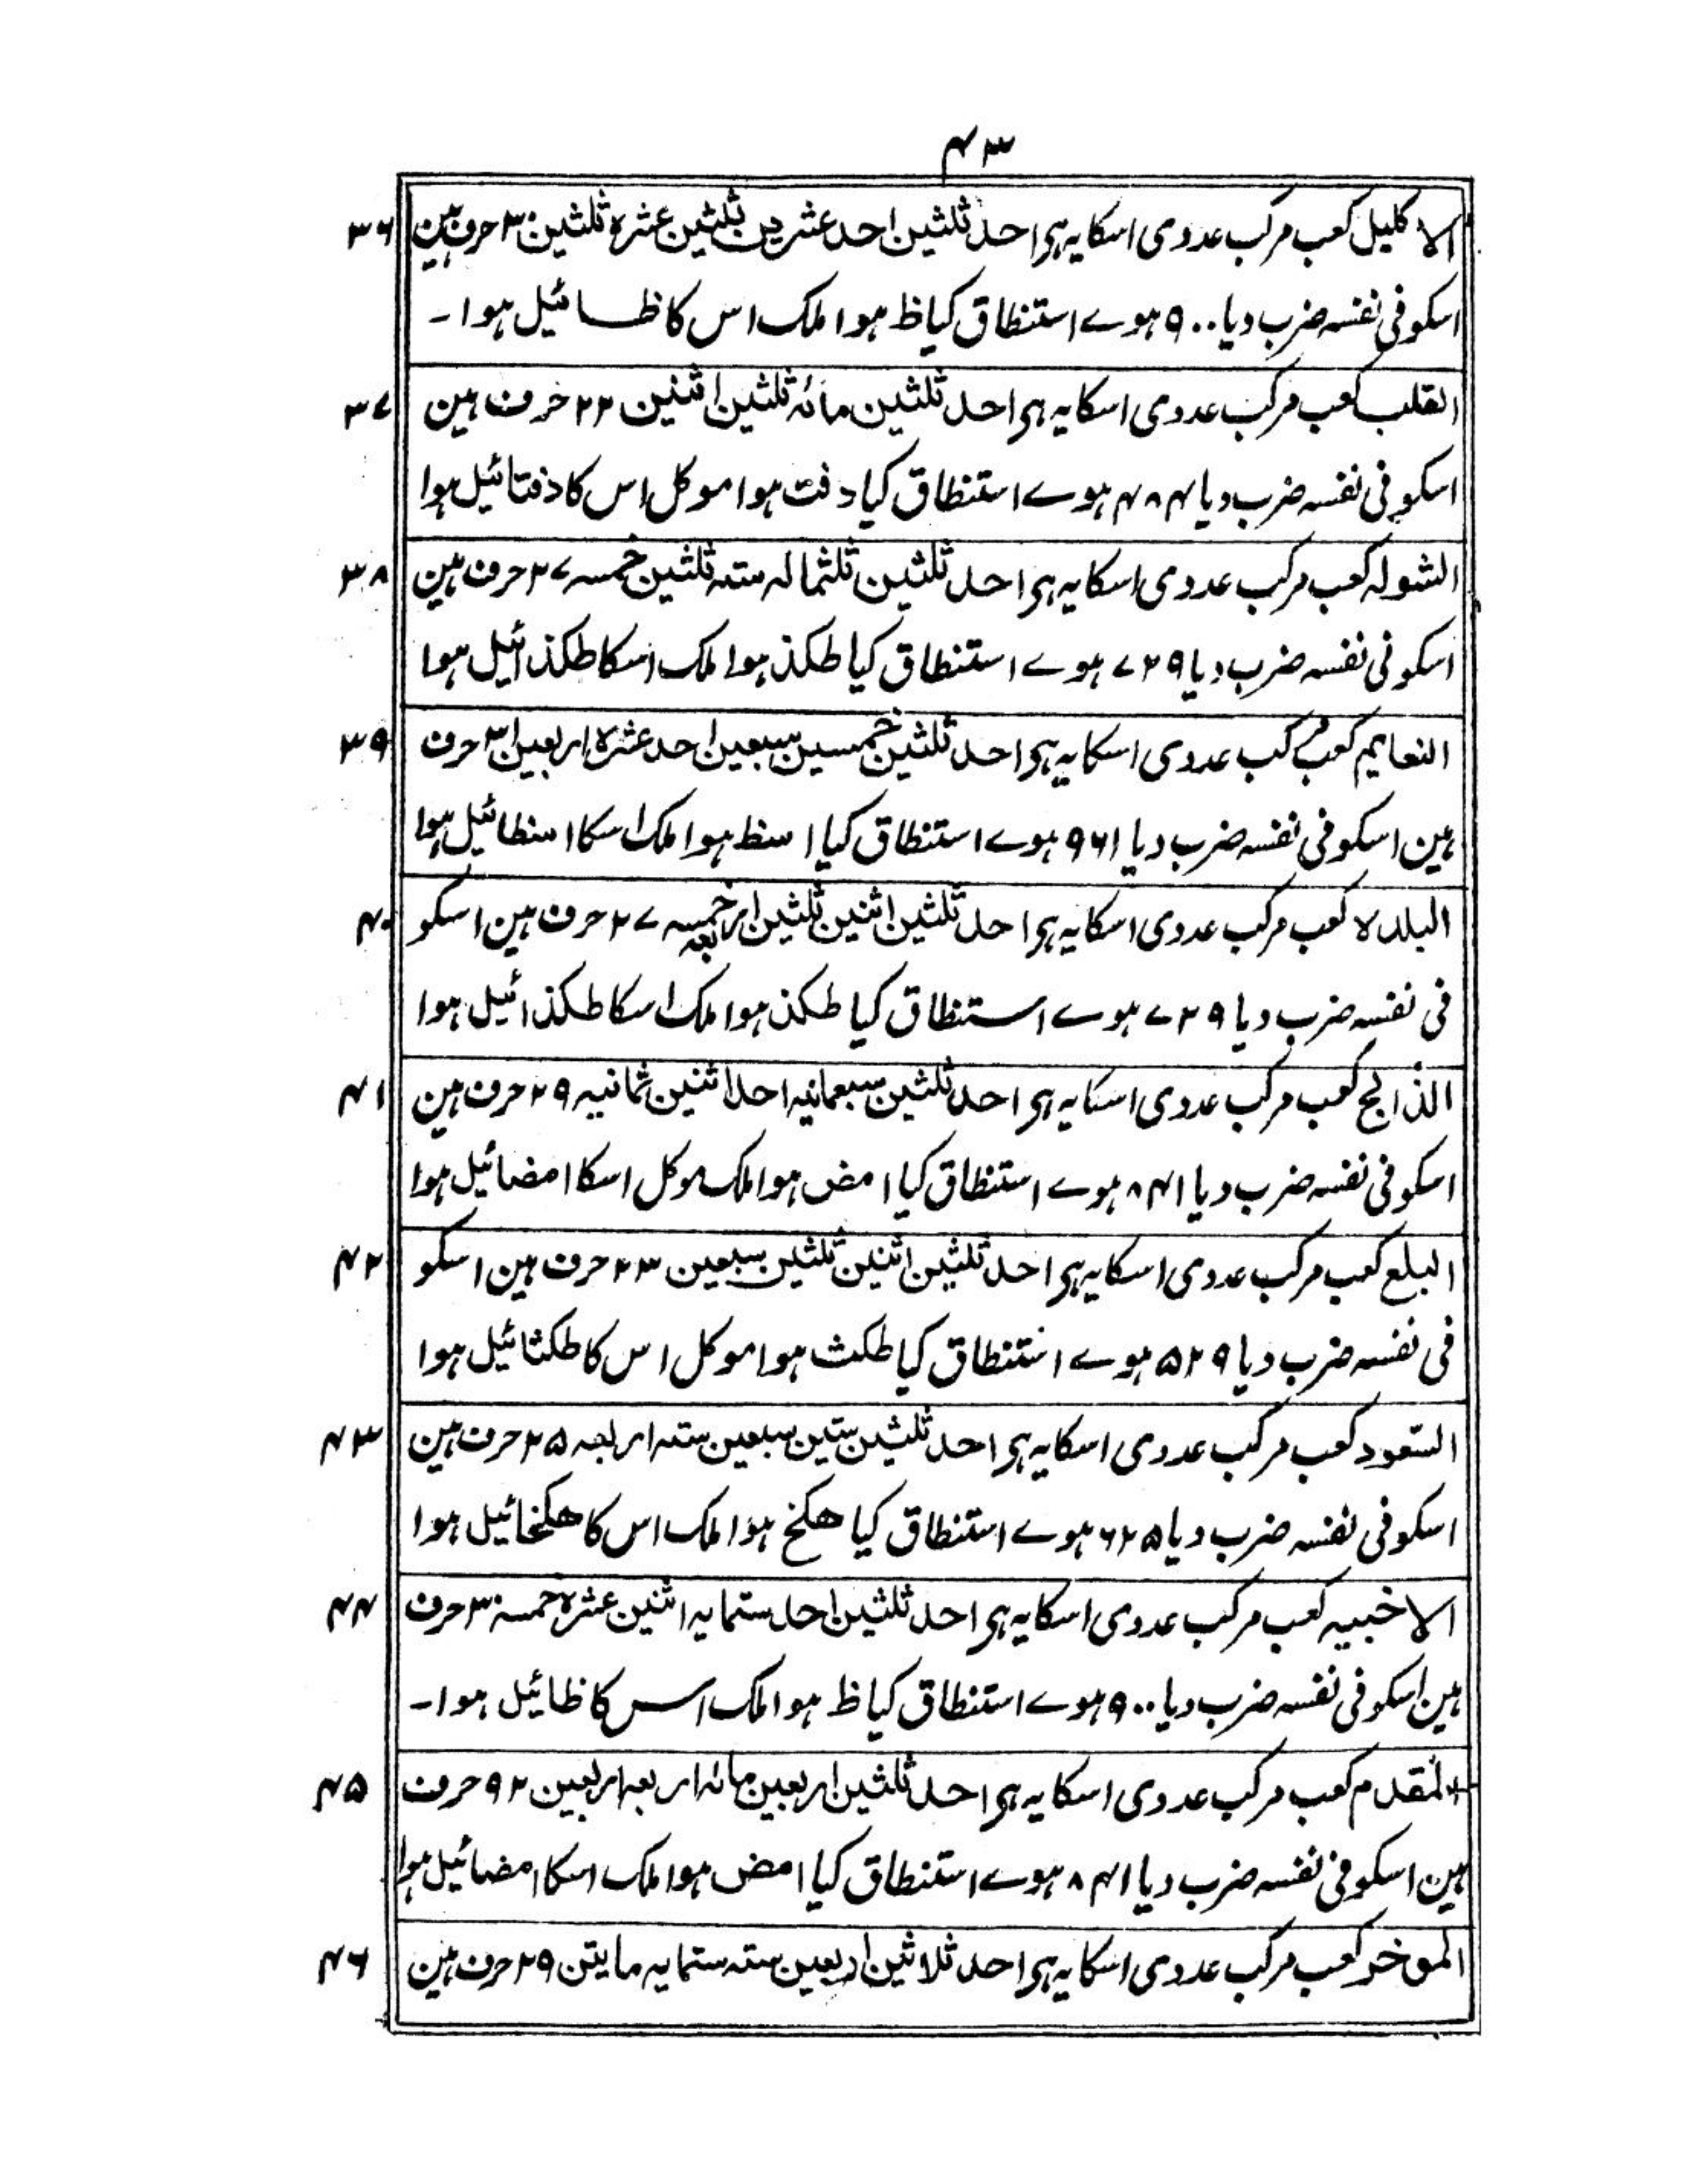 ۴۳
۳۶ الاکلیل کعب مرکب عددی اسکا یہ ہی احد ثلثین احد عشرین ثلثین عشرہ ثلثین ۳۰ حرف ہین
اسکو فی نفسہ ضرب دیا ۹۰۰ ہوے استنطاق کیا ظ ہوا ملک اس کا ظائیل ہوا۔
۳۷ القلب کعب مرکب عددی اسکا یہ ہی احد ثلثین مائہ ثلثین اثنین ۲۲ حرف ہین
اسکو فی نفسہ ضرب دیا ۴۸۴ ہوے استنطاق کیا دفت ہوا موکل اس کا دفتائیل ہوا
۳۸ الشولہ کعب مرکب عددی اسکا یہ ہی احد ثلثین ثلثمالہ ستہ ثلثین خمسہ ۲۷ حرف ہین
اسکو فی نفسہ ضرب دیا ۷۲۹ ہوے استنطاق کیا طکذ ہوا ملک اسکا طکذائیل ہوا
۳۹ النعایم کعب مرکب عددی اسکا یہ ہی احد ثلثین خمسین سبعین احد عشرہ اربعین ۳۱ حرف
ہین اسکو فی نفسہ ضرب دیا ۹۶۱ ہوے استنطاق کیا اسظ ہوا ملک اسکا اسظائیل ہوا
۴۰ البلدہ کعب مرکب عددی اسکا یہ ہی احد ثلثین اثنین ثلثین اربعہ خمسہ ۲۷ حرف ہین اسکو
فی نفسہ ضرب دیا ۷۲۹ ہوے استنطاق کیا طکذ ہوا ملک اسکا طکذائیل ہوا
۴۱ الذابح کعب مرکب عددی اسکا یہ ہی احد ثلثین سبعمایہ احد اثنین ثمانیہ ۲۹ حرف ہین
اسکو فی نفسہ ضرب دیا ۸۴۱ ہوے استنطاق کیا امض ہوا ملک موکل اسکا امضائیل ہوا
۴۲ البلع کعب مرکب عددی اسکا یہ ہی احد ثلثین اثنین ثلثین سبعین ۲۳ حرف ہین اسکو
فی نفسہ ضرب دیا ۵۲۹ ہوے استنطاق کیا طکث ہوا موکل اس کا طکثائیل ہوا
۴۳ السعود کعب مرکب عددی اسکا یہ ہی احد ثلثین ستین سبعین ستہ اربعہ ۲۵ حرف ہین
اسکو فی نفسہ ضرب دیا ۶۲۵ ہوے استنطاق کیا ھکخ ہوا ملک اس کا ھکخائیل ہوا
۴۴ الاخبیہ کعب مرکب عددی اسکا یہ ہی احد ثلثین احد ستمایہ اثنین عشرہ خمسہ ۳۰ حرف
ہین اسکو فی نفسہ ضرب دیا ۹۰۰ ہوے استنطاق کیا ظ ہوا ملک اس کا ظائیل ہوا۔
۴۵ المقدم کعب مرکب عددی اسکا یہ ہی احد ثلثین اربعین مائہ اربعہ اربعین ۹۲ حرف
ہین اسکو فی نفسہ ضرب دیا ۸۴۱ ہوے استنطاق کیا امض ہوا ملک اسکا امضائیل ہوا
۴۶ الموخر کعب مرکب عددی اسکا یہ ہی احد ثلاثین اربعین ستہ ستمایہ مایتن ۲۹ حرف ہین